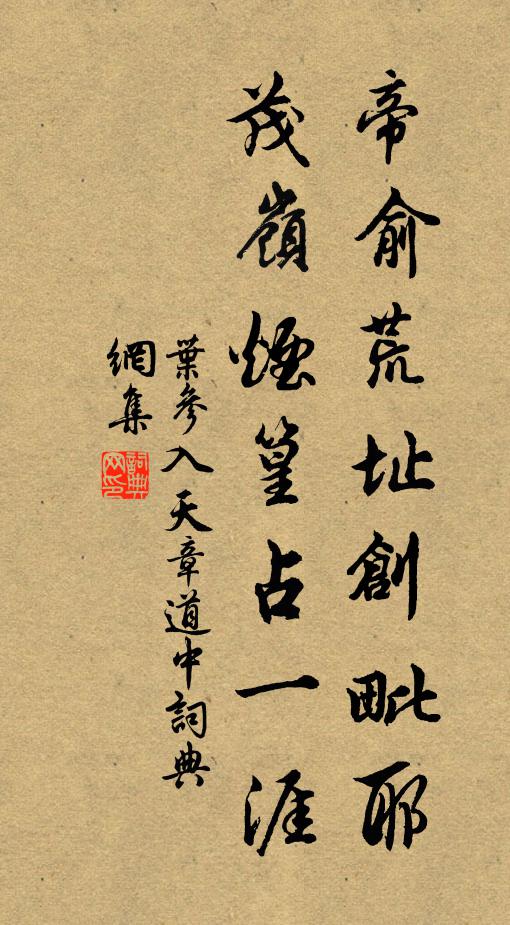 帝俞荒址創毗耶
茂嶺煙篁占一涯
葉參入天章道中詞典
網集
詞典網印